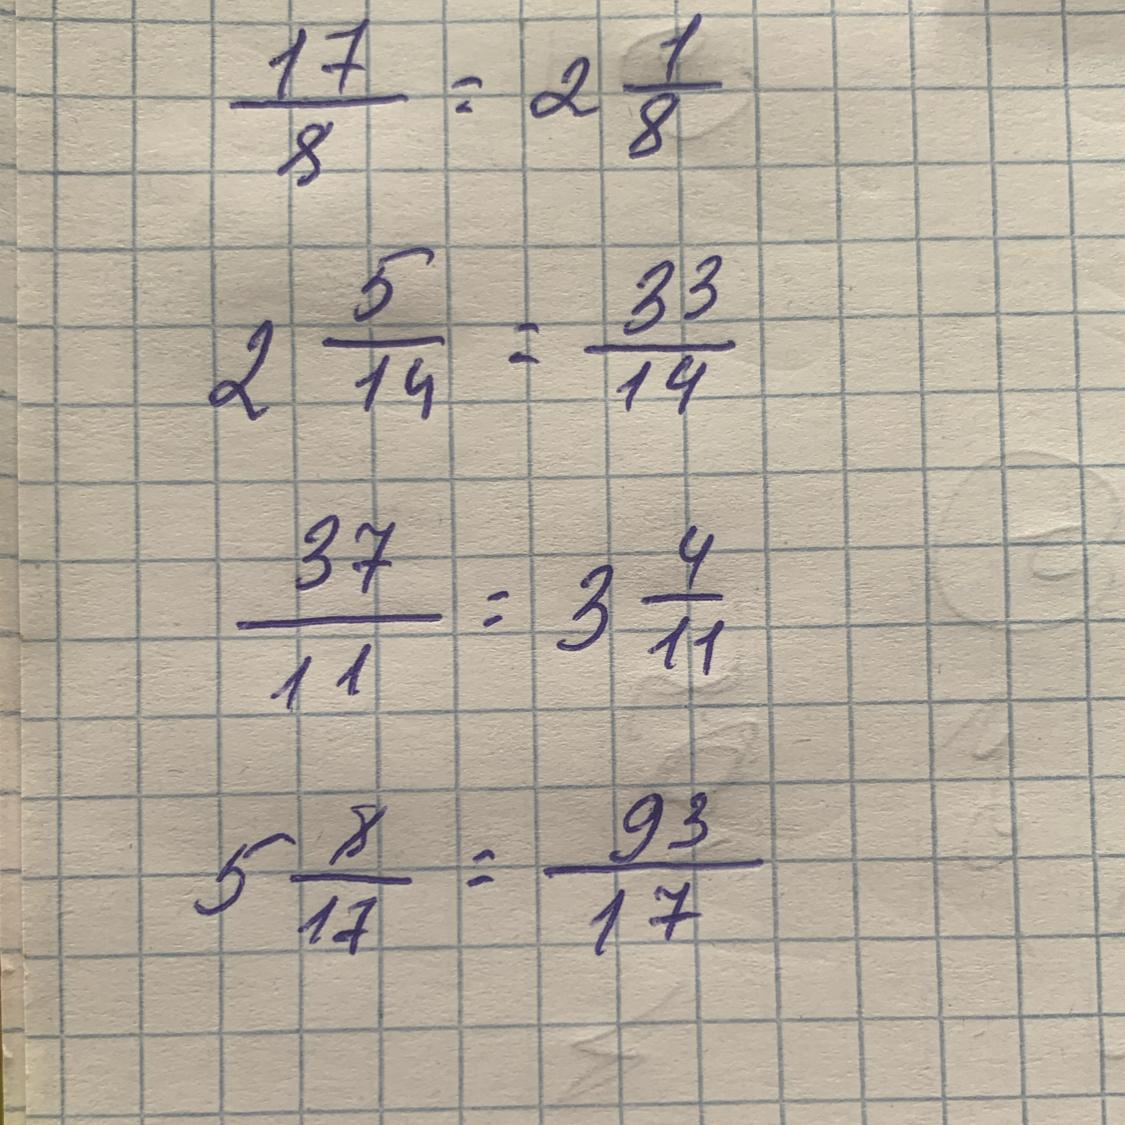 17/8 = 2 1/8
2 5/14 = 33/14
37/11 = 3 4/11
5 8/17 = 93/17